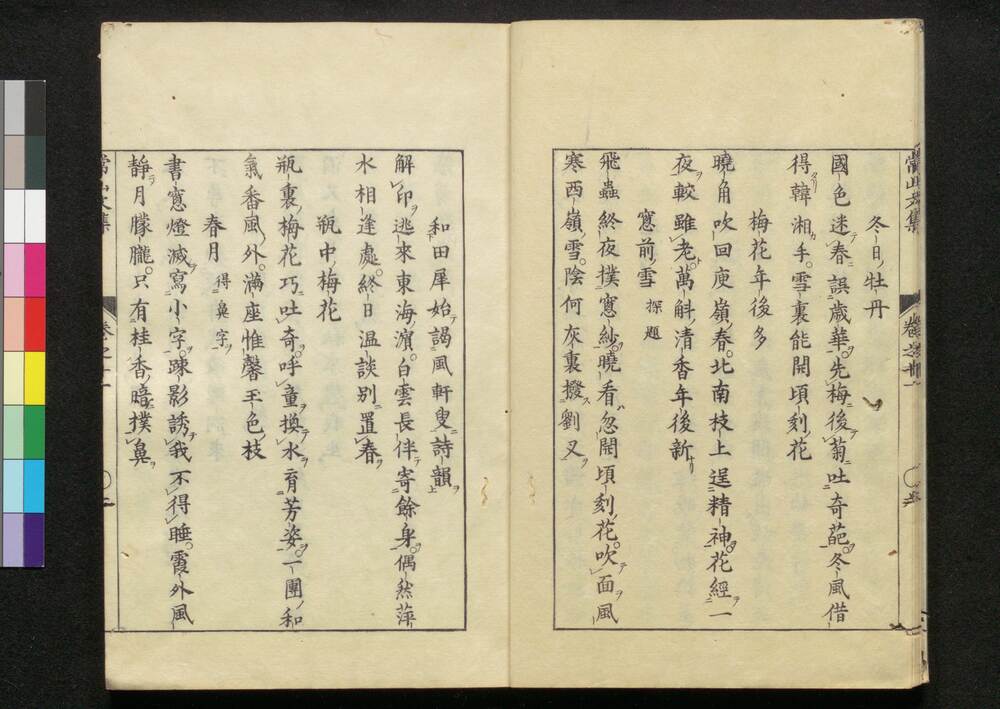 常山文集
卷之十一
冬日牡丹
國色迷春誤歲華先梅後菊吐奇葩冬風借
得韓湘手雪裏能開頃刻花
梅花年後多
曉角吹回庾嶺春北南枝上逞精神花經一
夜較雖老萬斛清香年後新
窓前雪 探題
飛蟲終夜撲窓紗曉看忽開頃刻花吹面風
寒西嶺雪陰何灰裏撥劉叉
和田犀始謁風軒叟詩韻
解印逃來東海濱白雲長伴寄餘身偶然萍
水相逢處終日温談別置春
瓶中梅花
瓶裏梅花巧吐奇呼童換水育芳姿一團和
氣香風外滿座惟馨玉色枝
春月 得鼻字
書窓燈滅寫小字踈影誘我不得睡霞外風
靜月朦朧只有桂香暗撲鼻
常山文集
卷之十一